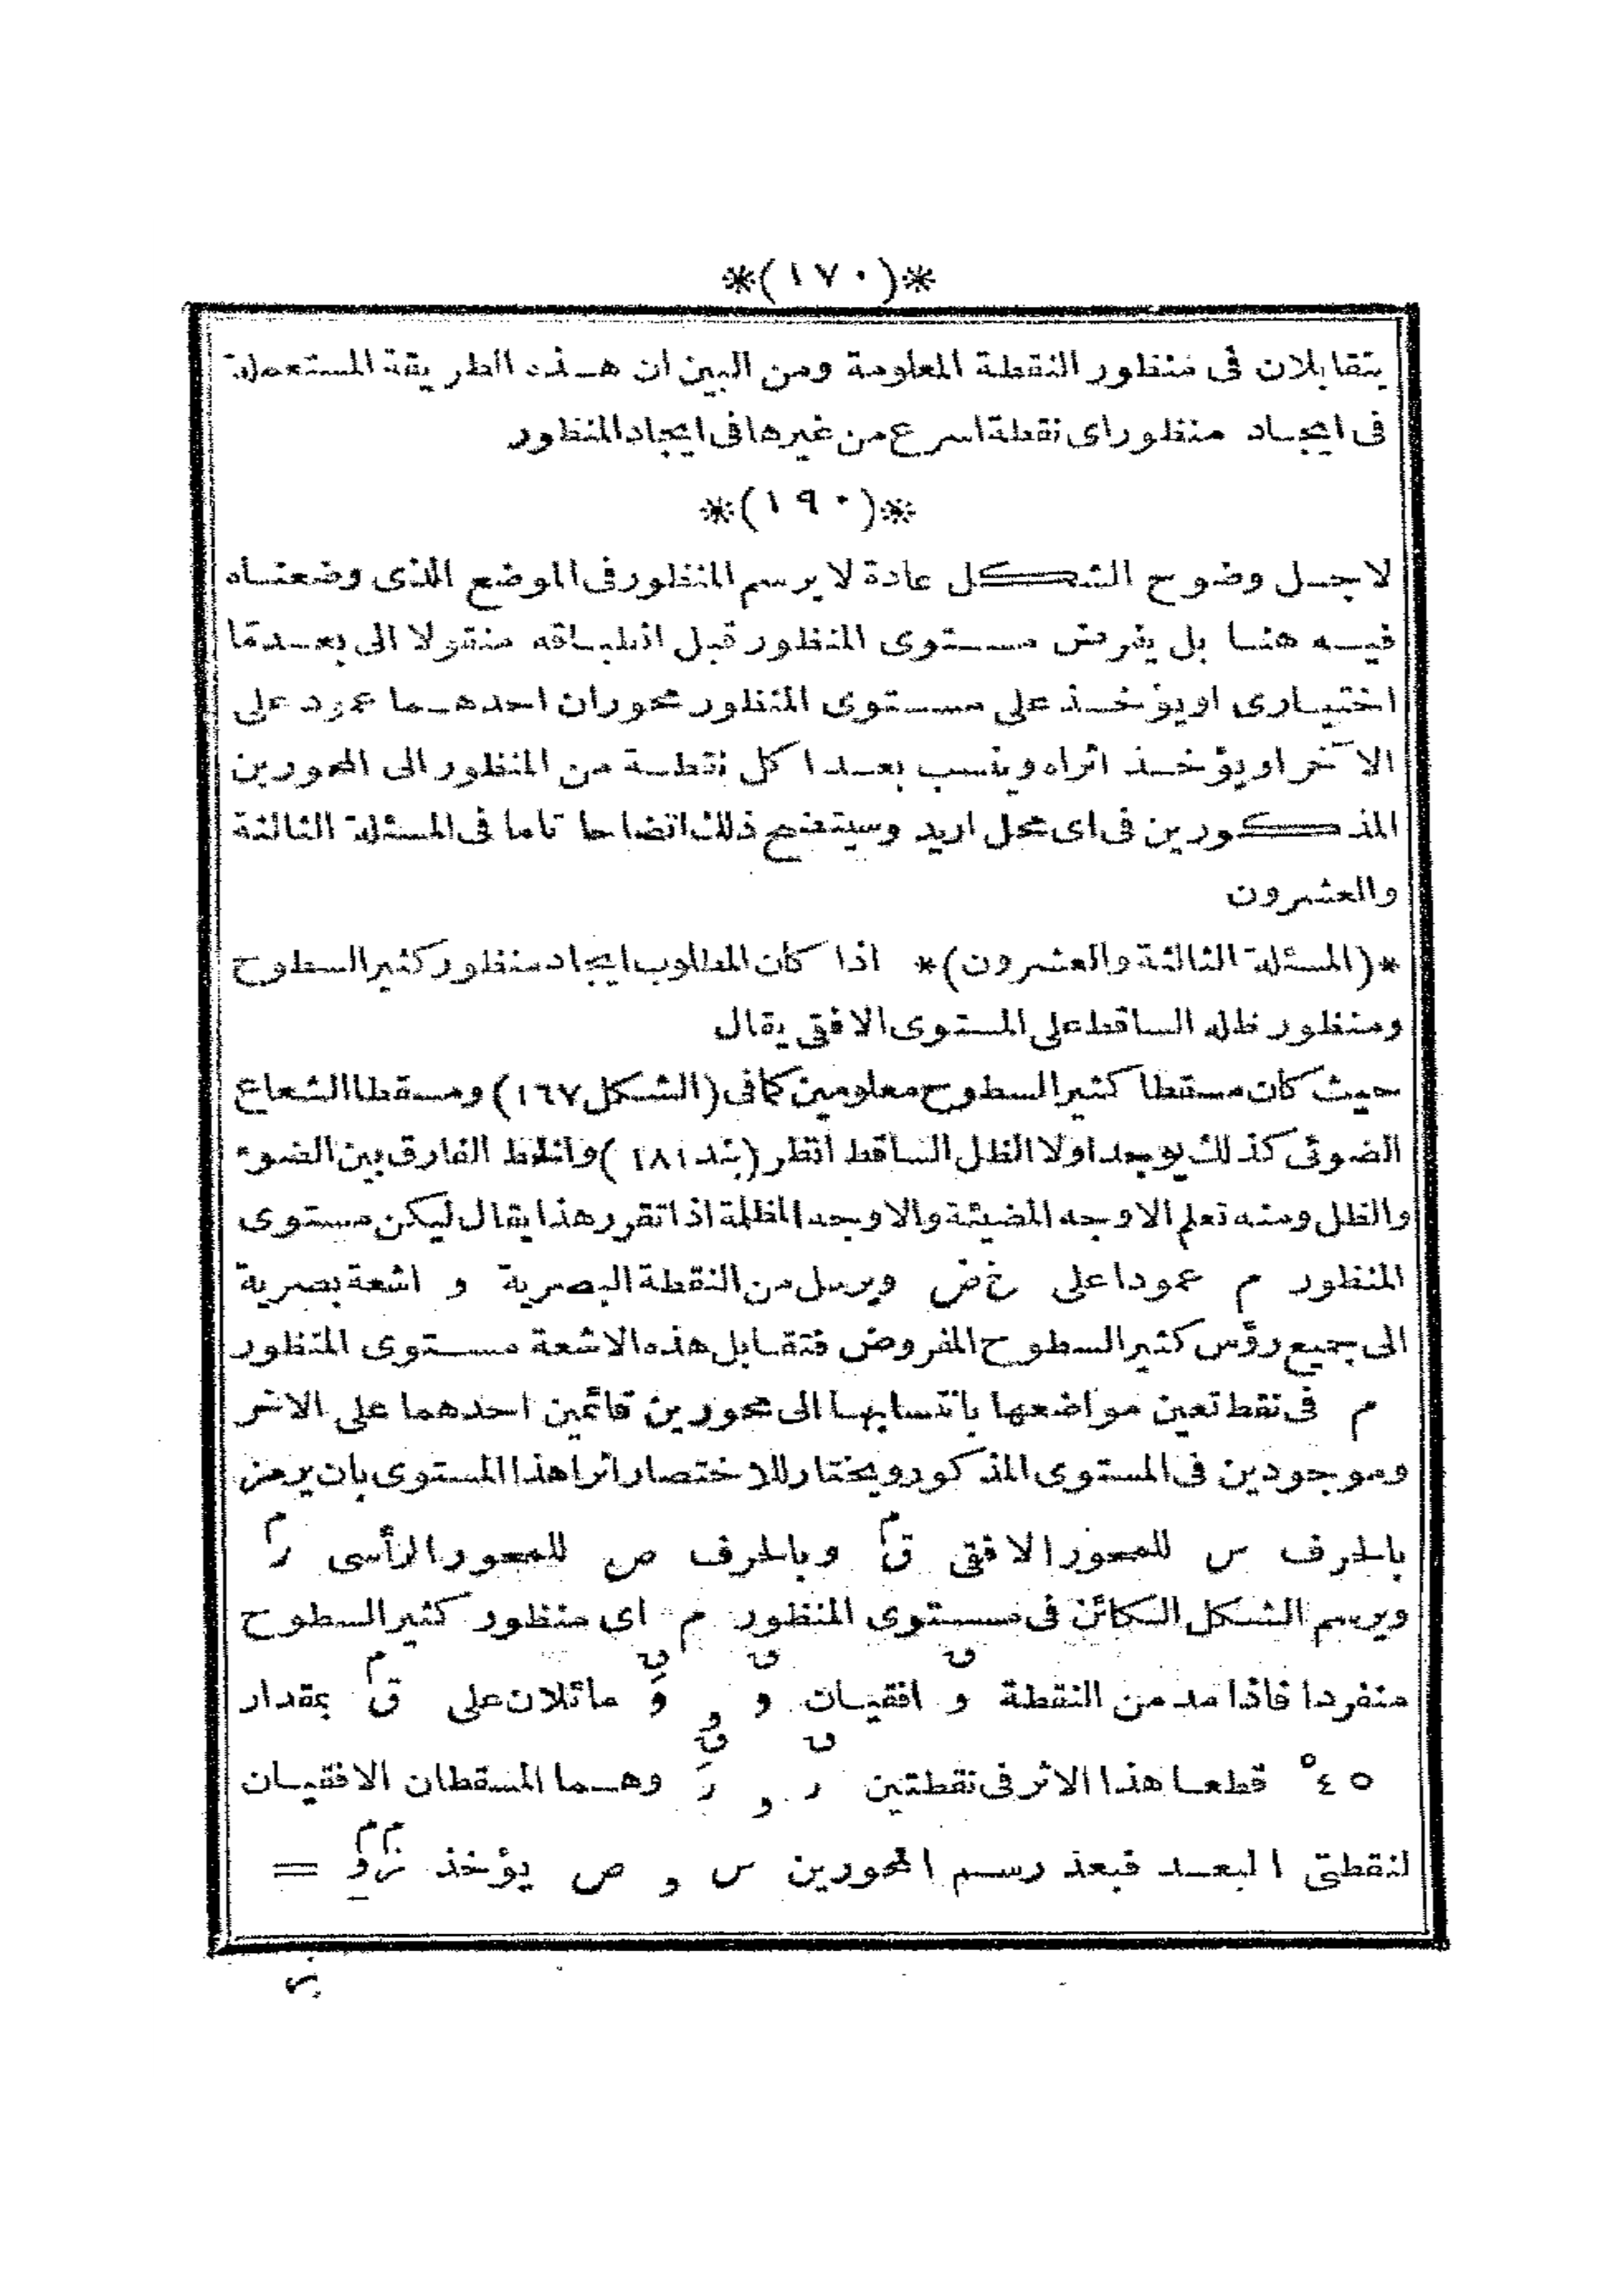 *(١٧٠)*
يتقابلان فى منظور النقطة المعلومة ومن البين ان هذه الطريقة المستعملة
فى ايجاد منظور اى نقطة اسرع من غيرها فى ايجاد المنظور
*(١٩٠)*
لاجل وضوح الشكل عادة لا يرسم المنظور فى الموضع الذى وضعناه
فيه هنا بل يفرض مستوى المنظور قبل انطباقه منقولا الى بعد ما
اختيارى او يؤخذ على مستوى المنظور محوران احدهما عمود على
الآخر او يؤخذ اثراه وينسب بعدا كل نقطة من المنظور الى المحورين
المذكورين فى اى محل اريد وسيتضح ذلك اتضاحا تاما فى المسئلة الثالثة
والعشرون
*(المسئلة الثالثة والعشرون)* اذا كان المطلوب ايجاد منظور كثير السطوح
ومنظور ظله الساقط على المستوى الافقى يقال
حيث كان مسقطا كثير السطوح معلومين كما فى (الشكل ١٦٧) ومسقطا الشعاع
الضوئى كذلك يوجد اولا الظل الساقط انظر (بند ١٨١) والخط الفارق بين الضوء
والظل ومنه تعلم الاوجه المضيئة والاوجه المظلمة اذا تقرر هذا يقال ليكن مستوى
المنظور م عمودا على خ ض ويرسل من النقطة البصرية و اشعة بصرية
الى جميع رؤس كثير السطوح المفروض فتقابل هذه الاشعة مستوى المنظور
م فى نقط تعين مواضعها بانتسابها الى محورين قائمين احدهما على الاخر
وموجودين فى المستوى المذكور ويختار للاختصار اثرا هذا المستوى بان يرمز
بالحرف س للمحور الافقى ق م وبالحرف ص للمحور الرأسى ر م
ويرسم الشكل الكائن فى مستوى المنظور م اى منظور كثير السطوح
منفردا فاذا مد من النقطة و افقيات و و وَ مائلان على ق م بمقدار
٤٥° قطعا هذا الاثر فى نقطتين ر و رَ وهما المسقطان الافقيان
لنقطتى البعد فبعد رسم المحورين س و ص يؤخذ =